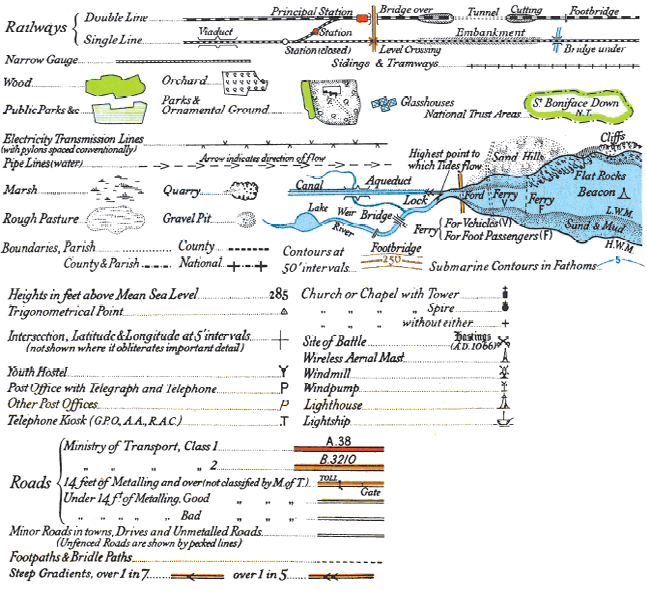 Railways
Double Line
Principal Station
Bridge over
Tunnel
Cutting
Footbridge
Single Line
Viaduct
Station
Station (closed)
Level Crossing
Embankment
Bridge under
Narrow Gauge
Sidings & Tramways
Wood
Orchard
Public Parks &c
Parks &
Ornamental Ground
Glasshouses
National Trust Areas
St Boniface Down
N.T.
Electricity Transmission Lines
(with pylons spaced conventionally)
Pipe Lines (water)
Arrow indicates direction of flow
Highest point to
which Tides flow
Sand Hills
Cliffs
Flat Rocks
Beacon
Marsh
Quarry
Canal
Aqueduct
Lock
Ford
Ferry
V
Ferry
F
L.W.M.
Rough Pasture
Gravel Pit
Lake
Weir
Bridge
River
Ferry
For Vehicles (V)
For Foot Passengers (F)
Sand & Mud
H.W.M.
Boundaries, Parish
County
County & Parish
National
Contours at
50' intervals
Footbridge
250
Submarine Contours in Fathoms
5
Heights in feet above Mean Sea Level
285
Trigonometrical Point
Intersection, Latitude & Longitude at 5' intervals
(not shown where it obliterates important detail)
Youth Hostel
Y
Post Office with Telegraph and Telephone
P
Other Post Offices
P
Telephone Kiosk (G.P.O., A.A., R.A.C.)
T
Church or Chapel with Tower
" " " " Spire
" " " without either
Site of Battle
Hastings
(A.D. 1066)
Wireless Aerial Mast
Windmill
Windpump
Lighthouse
Lightship
Roads
Ministry of Transport, Class 1
A.38
" " " " 2
B.3210
14 feet of Metalling and over (not classified by M. of T.)
TOLL
Gate
Under 14 ft of Metalling, Good " " "
" " " " " Bad " " "
Minor Roads in towns, Drives and Unmetalled Roads
(Unfenced Roads are shown by pecked lines)
Footpaths & Bridle Paths
Steep Gradients, over 1 in 7
over 1 in 5